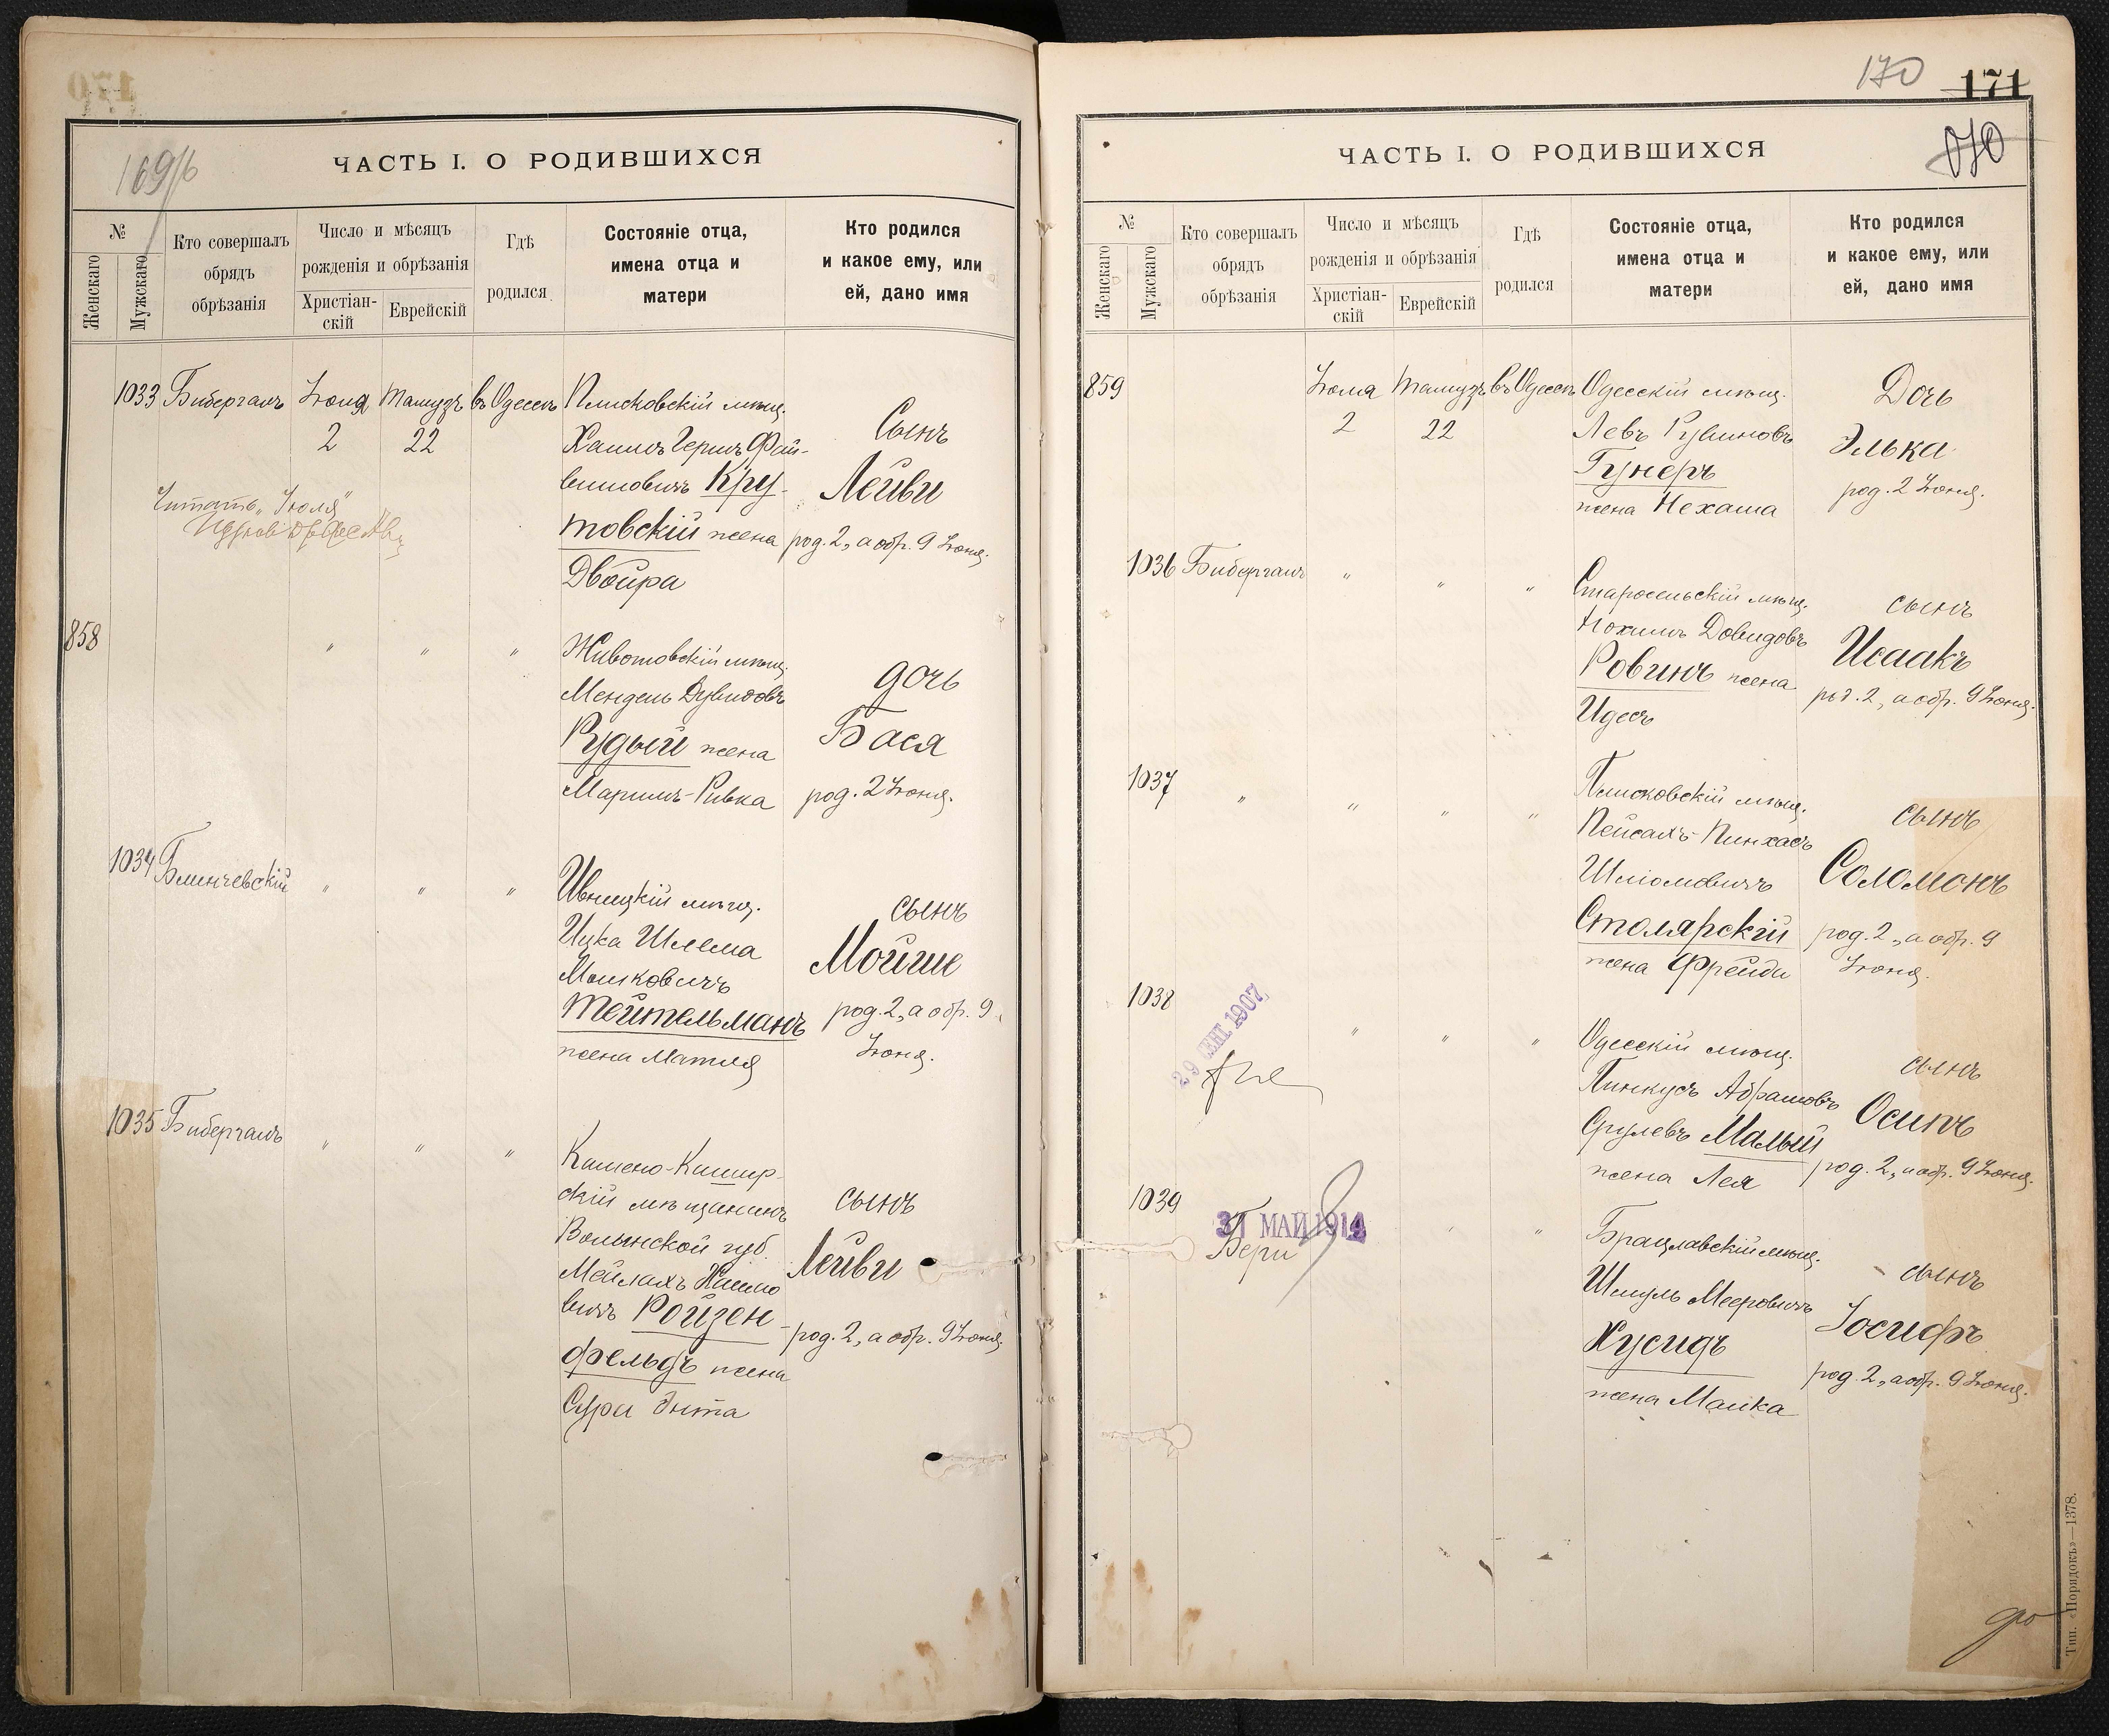 169/б
ЧАСТЬ I. О РОДИВШИХСЯ
№
Женскаго
Мужскаго
Кто совершалъ
обрядъ
обрѣзанія
Число и мѣсяцъ
рожденія и обрѣзанія
Христіан-
скій
Еврейскій
Гдѣ
родился
Состояніе отца,
имена отца и
матери
Кто родился
и какое ему, или
ей, дано имя
1033 Бибергалъ Іюня Тамузъ въ Одессѣ Плисковскій мѣщ.
2 22 Хаимъ Гершъ Фай-
вишовичъ Кру-
товскій жена
Двойра
Сынъ
Лейви
род. 2, а обр. 9 Іюня.
Читать „Іюля"
858 " " " Животовскій мѣщ.
Мендель Дувидовъ
Рудый жена
Маримъ-Ривка
дочь
Бася
род. 2 Іюня.
1034 Блинчевскій " " " Ивницкій мѣщ.
Ицка Шлема
Мошковичъ
Тейтельманъ
жена Матля
сынъ
Мойше
род. 2, а обр. 9
Іюня.
1035 Бибергалъ " " " Камено-Кашир-
скій мѣщанинъ
Волынской губ.
Мейлахъ
вичъ Ройзен-
фельдъ жена
Сура Энта
сынъ
Лейви
род. 2, а обр. 9 Іюня.
170
171
ЧАСТЬ I. О РОДИВШИХСЯ
№
Женскаго
Мужскаго
Кто совершалъ
обрядъ
обрѣзанія
Число и мѣсяцъ
рожденія и обрѣзанія
Христіан-
скій
Еврейскій
Гдѣ
родился
Состояніе отца,
имена отца и
матери
Кто родился
и какое ему, или
ей, дано имя
859 Іюня Тамузъ въ Одессѣ Одесскій мѣщ.
2 22 Левъ Рувиновъ
Гунеръ
жена Нехама
Дочь
Элька
род. 2 Іюня.
1036 Бибергалъ " " " Старосельскій мѣщ.
Нохимъ Довидовъ
Ровинъ жена
Идесъ
сынъ
Исаакъ
род. 2, а обр. 9 Іюня.
1037 " " " " Плисковскій мѣщ.
Пейсахъ-Пинхасъ
Шліомовичъ
Столярскій
жена Фрейда
сынъ
Соломонъ
род. 2, а обр. 9
Іюня.
1038 " " " Одесскій мѣщ.
Пинкусъ Абрамовъ
Срулевъ Малый
жена Лея
сынъ
Осипъ
род. 2, а обр. 9 Іюня.
29 СЕН. 1907
1039 " " Брацлавскій мѣщ.
Шмуль Мееровичъ
Хусидъ
жена Малка
сынъ
Іосифъ
род. 2, а обр. 9 Іюня.
31 МАЙ 1914
Тип. «Порядокъ»—1378.